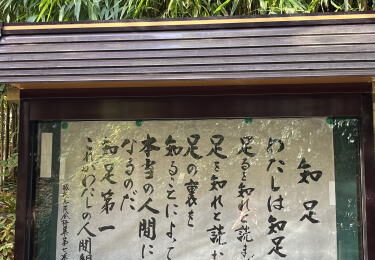 知足
わたしは知足
足ると知れと読まず
足を知れと読む
足の裏を
知ることによって
本当の人間に
なるのだ
知足第一
これがわたしの人間